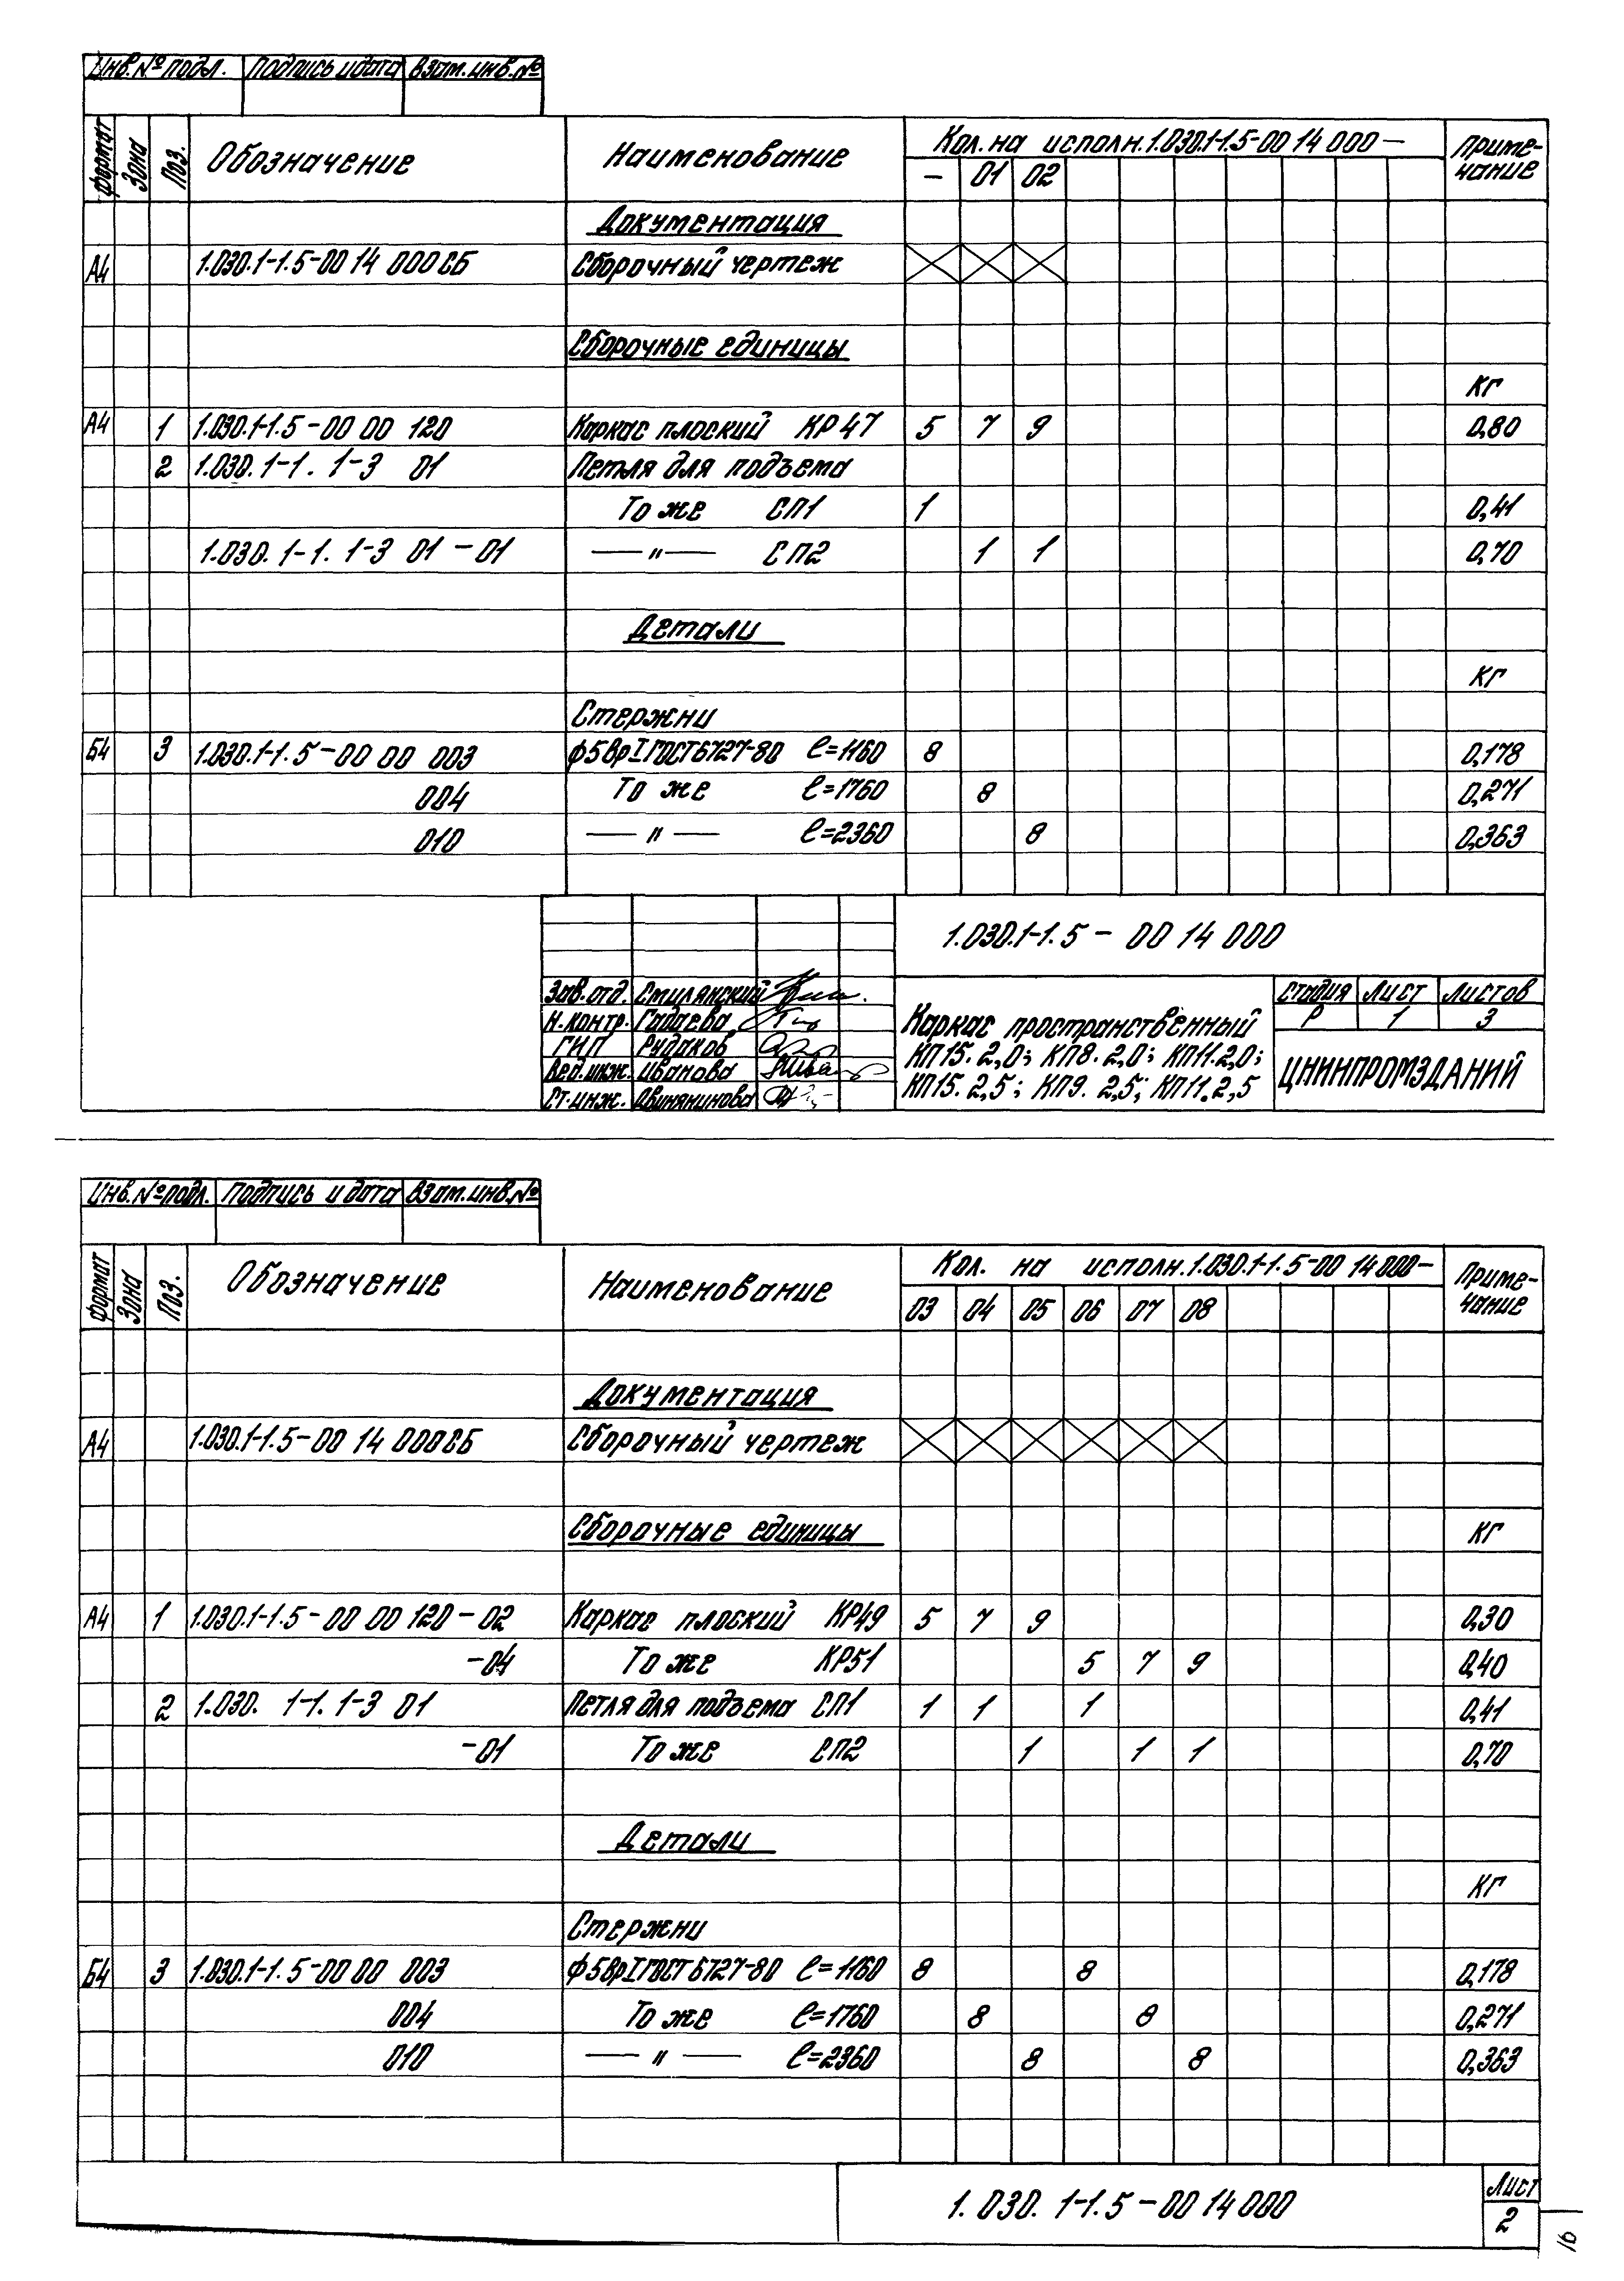 Инв.№ подл. Подпись и дата Взам.инв.№
Формат Зона Поз. Обозначение Наименование Кол. на исполн. 1.030.1-1.5-00 14 000 — Приме-
чание
— 01 02
Документация
А4 1.030.1-1.5-00 14 000СБ Сборочный чертеж
Сборочные единицы
кг
А4 1 1.030.1-1.5-00 00 120 Каркас плоский КР47 5 7 9 0,80
2 1.030.1-1.1-3 01 Петля для подъема
То же СП1 1 0,41
1.030.1-1.1-3 01-01 — " — СП2 1 1 0,70
Детали
кг
Стержни
Б4 3 1.030.1-1.5-00 00 003 ф5ВрI ГОСТ 6727-80 ℓ=1160 8 0,178
004 То же ℓ=1760 8 0,271
010 — " — ℓ=2360 8 0,363
1.030.1-1.5-00 14 000
Зав.отд. Смилянский
Н.контр. Гадаева
ГИП Рудаков
Вед.инж. Иванова
Ст.инж. Двинянинова
Каркас пространственный
КП15.2,0; КП8.2,0; КП11.2,0;
КП15.2,5; КП9.2,5; КП11.2,5
Стадия Лист Листов
Р 1 3
ЦНИИПРОМЗДАНИЙ
Инв.№ подл. Подпись и дата Взам.инв.№
Формат Зона Поз. Обозначение Наименование Кол. на исполн. 1.030.1-1.5-00 14 000— Приме-
чание
03 04 05 06 07 08
Документация
А4 1.030.1-1.5-00 14 000СБ Сборочный чертеж
Сборочные единицы кг
А4 1 1.030.1-1.5-00 00 120-02 Каркас плоский КР49 5 7 9 0,30
-04 То же КР51 5 7 9 0,40
2 1.030.1-1.1-3 01 Петля для подъема СП1 1 1 1 0,41
-01 То же СП2 1 1 1 0,70
Детали
кг
Стержни
Б4 3 1.030.1-1.5-00 00 003 ф5ВрI ГОСТ 6727-80 ℓ=1160 8 8 0,178
004 То же ℓ=1760 8 8 0,271
010 — " — ℓ=2360 8 8 0,363
1.030.1-1.5-00 14 000
Лист
2
16